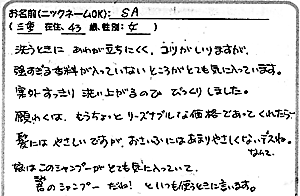 お名前(ニックネームOK): SA
(三重 在住、43 歳、性別: 女 )
洗うときに あわが立ちにくく、コツがいりますが、
強すぎる香料が入っていないところがとても気に入っています。
案外すっきり 洗い上がるので びっくりしました。
願わくは、もうちょっと リーズナブルな価格であってくれたら…
髪には やさしいですが、おさいふには あまりやさしくない ですね。
なんて。
娘は このシャンプーが とても気に入っていて、
のシャンプー だね! といつも使うときに言います。